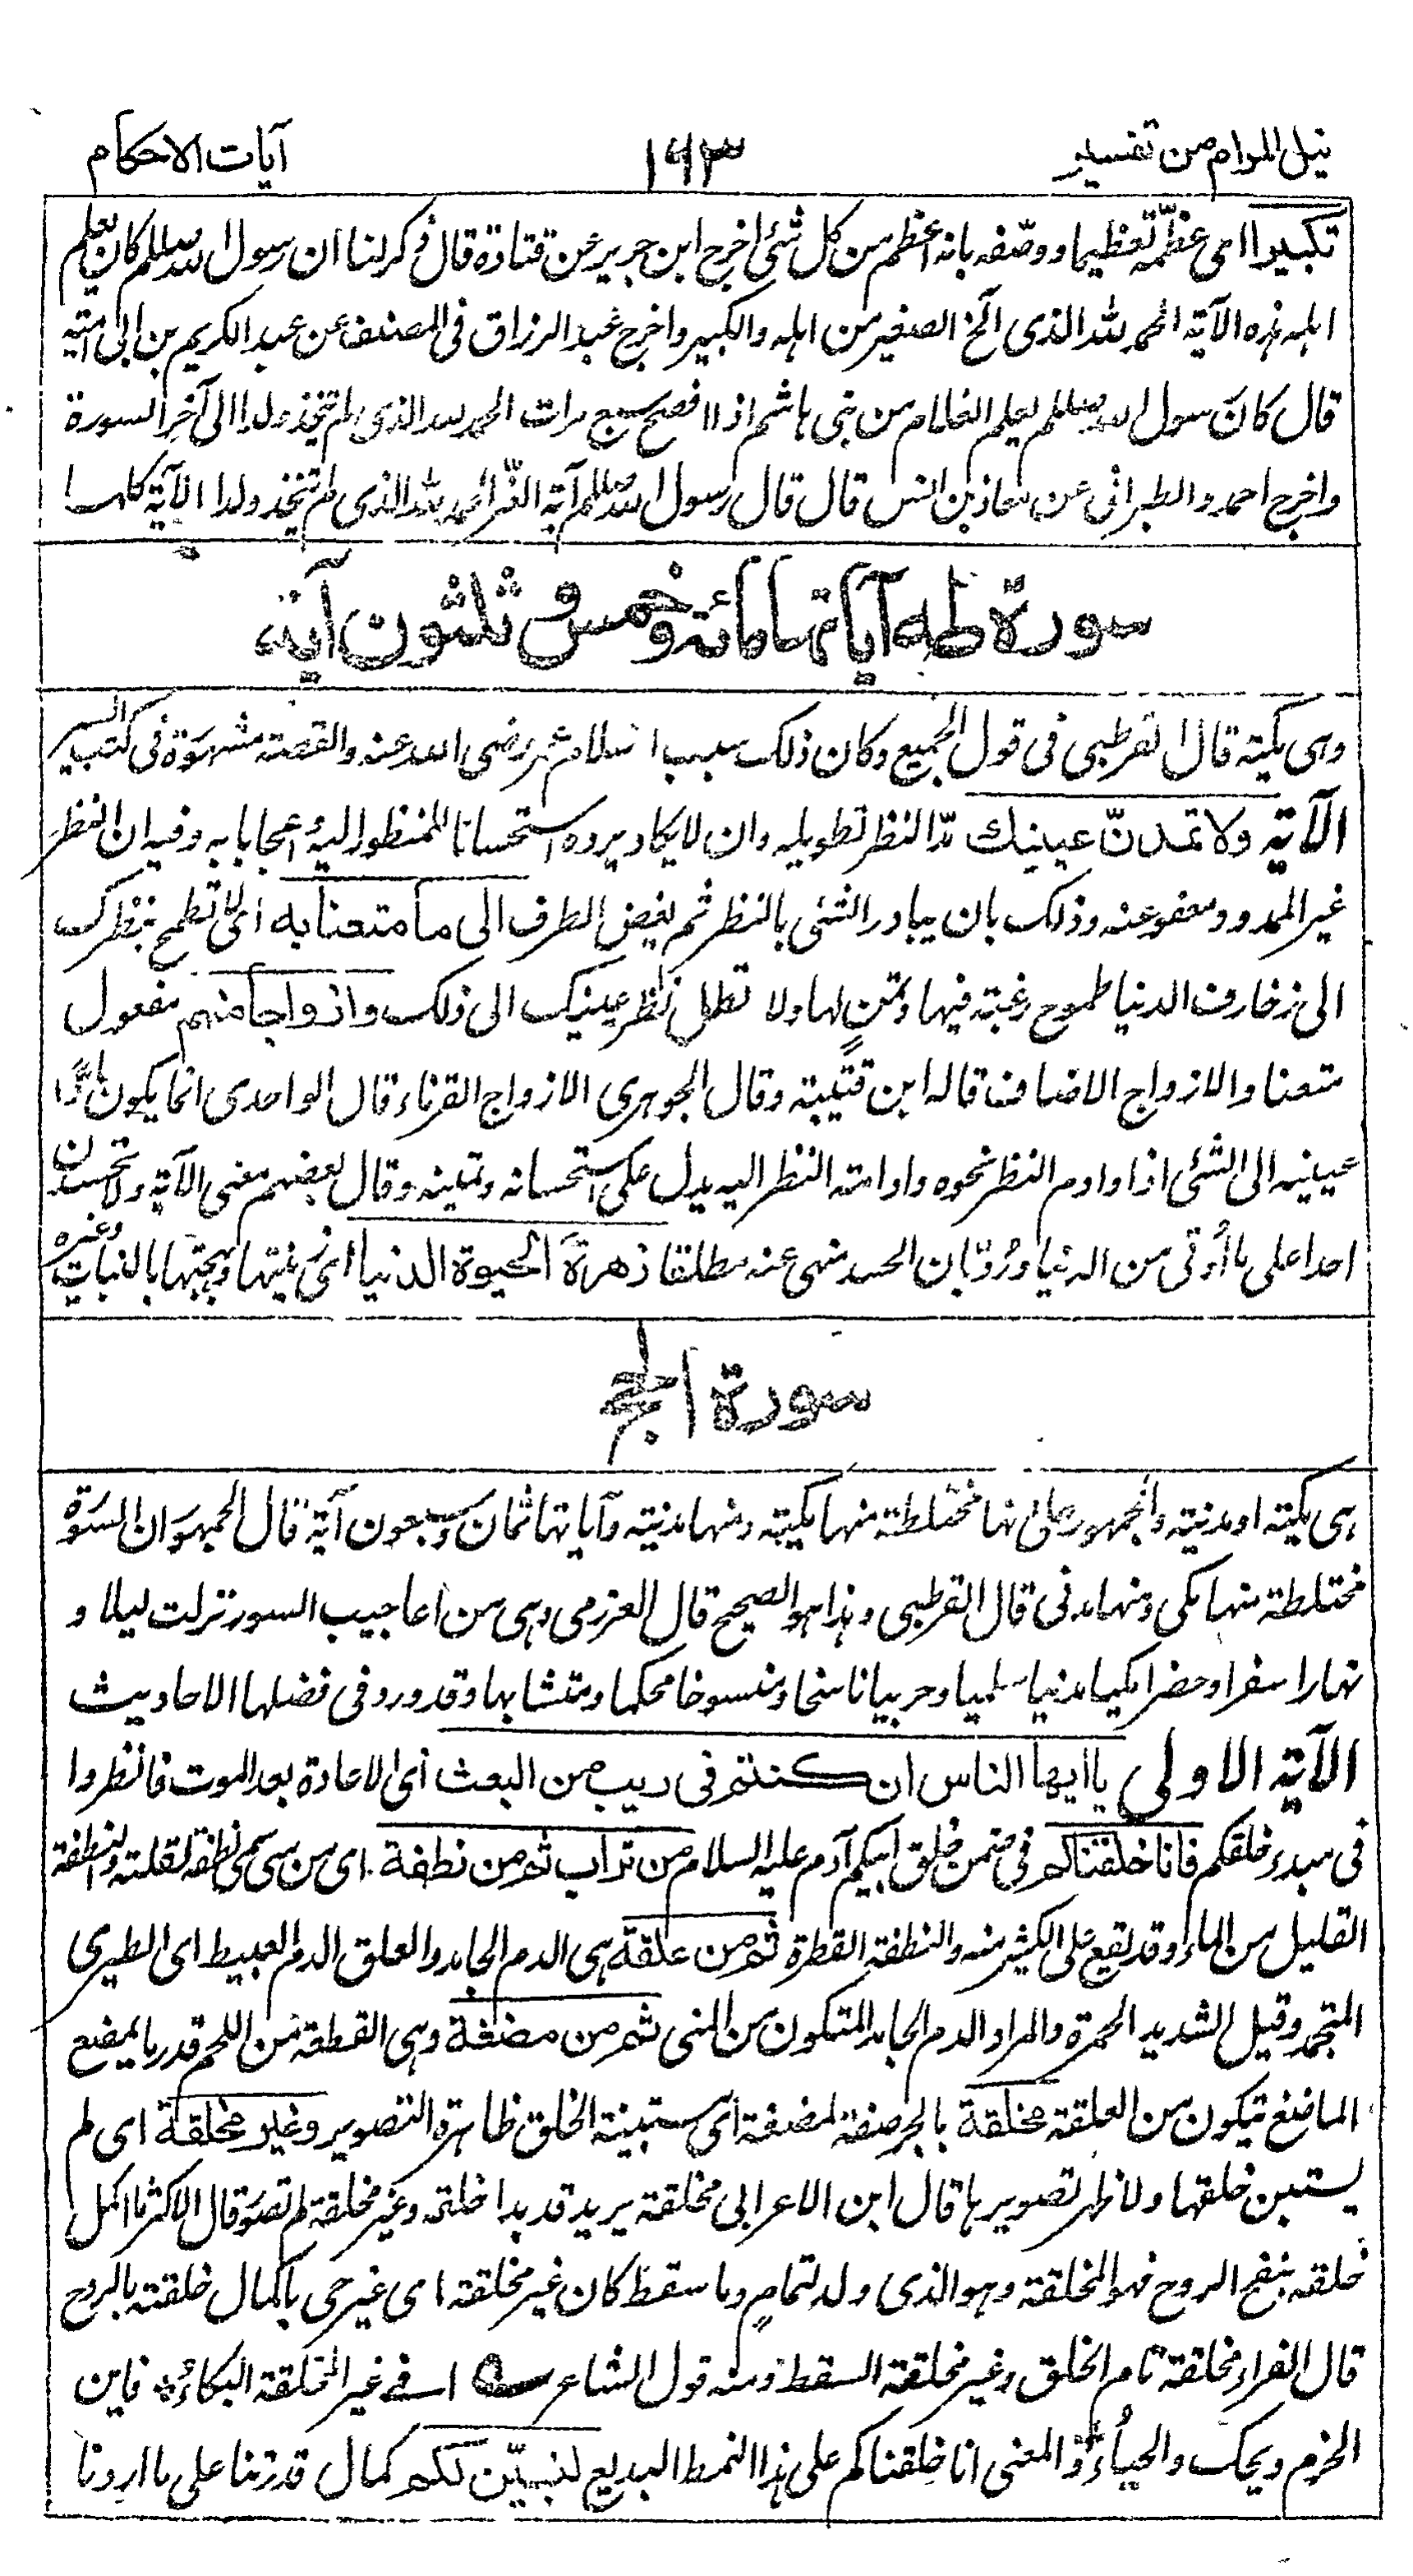 نيل المرام من تفسير
١٦٣
آيات الاحكام
تكبيرا اى عظّمه تعظيما ووصّفه بانه اعظم من كل شئى اخرج ابن جرير عن قتادة قال ذكر لنا ان رسول الله صللم كان يعلم
اہله ہذہ الآية الحمد لله الذى الخ الصغير من اہله والكبير واخرج عبد الرزاق فى المصنف عن عبد الكريم بن ابى امية
قال كان رسول الله صللم يعلم الغلام من بنى ہاشم اذا افصح سبع مرات الحمد لله الذى لم تيخذ ولدا الى آخر السورة
واخرج احمد والطبرانى عن معاذ بن انس قال قال رسول الله صللم آية العزّ الحمد لله الذى لم تيخذ ولدا الآية كلہا
سورة طه آياتها مائة وخمس وثلثون آية
وہى مكية قال القرطبى فى قول الجميع وكان ذلك سبب اسلام عمر رضى الله عنه والقصة مشہورة فى كتب السير
الآية ولا تمدنّ عينيك مدّ النظر تطويله وان لا يكاد يرده استحسانا للمنظور اليه واعجابا به وفيه ان النظر
غير الممدود معفو عنه وذلك بان يبادر الشئى بالنظر ثم يغض الطرف الى ما متعنا به اى لا تطمح بنظرك
الى زخارف الدنيا طموح رغبة فيها وتمنٍ لها ولا تطل نظر عينيك الى ذلك وازواجا منهم مفعول
متعنا والازواج الاصناف قاله ابن قتيبة وقال الجوہرى الازواج القرناء قال الواحدى انما يكون مادًّا
عينيه الى الشئى اذا ادام النظر نحوه وادامة النظر اليه يدل على استحسانه وتمنيه وقال بعضہم معنى الآية ولا تحسدن
احدا على ما اُوتى من الدنيا ورُدّ بان الحسد منہى عنه مطلقا زهرة الحيوة الدنيا اى زينتها وبہجتہا بالنبات وغيره
سورة الحج
ہى مكية او مدنية والجمہور على انہا مختلطة منہا مكية ومنہا مدنية وآياتها ثمان وسبعون آية قال الجمہور ان السورة
مختلطة منہا مكى ومنہا مدنى قال القرطبى وہذا ہو الصحيح قال العزرمى وہى من اعاجيب السور نزلت ليلا و
نہارا سفرا وحضرا مكيا مدنيا سلميا وحربيا ناسخا ومنسوخا محكما ومتشابہا وقد ورد فى فضلہا الاحاديث
الآية الاولى يا ايها الناس ان كنتم فى ريب من البعث اى الاعادة بعد الموت فانظروا
فى مبدء خلقكم فانا خلقناكم فى ضمن خلق ابيكم آدم عليه السلام من تراب ثم من نطفة اى من منى سمى نطفة لقلته والنطفة
القليل من الماء وقد يقع على الكثير منه والنطفة القطرة ثم من علقة ہى الدم الجامد والعلق الدم العبيط اى الطرى
المتجمد وقيل الشديد الحمرة والمراد الدم الجامد المتكون من المنى ثم من مضغة وہى القطعة من اللحم قدر ما يمضغ
الماضغ تيكون من العلقة مخلقة بالجر صفة لمضغة اى مستبينة الخلق ظاہرة التصوير وغير مخلقة اى لم
يستبن خلقها ولا ظہر تصويرہا قال ابن الاعرابى مخلقة يريد قد بدا خلقه وغير مخلقة لم تصور قال الاكثر ما اكمل
خلقه بنفخ الروح فہو المخلقة وہو الذى ولد لتمامٍ وما سقط كان غير مخلقة اى غير حى باكمال خلقته بالروح
قال الفراء مخلقة تام الخلق وغير مخلقة السقط ومنه قول الشاعر ـه افى غير المخلقة البكاءُ ❊ فاين
الحزم ويحك والحياءُ والمعنى انا خلقناكم على ہذا النمط البديع لنبيّن لكم كمال قدرتنا على ما اردنا